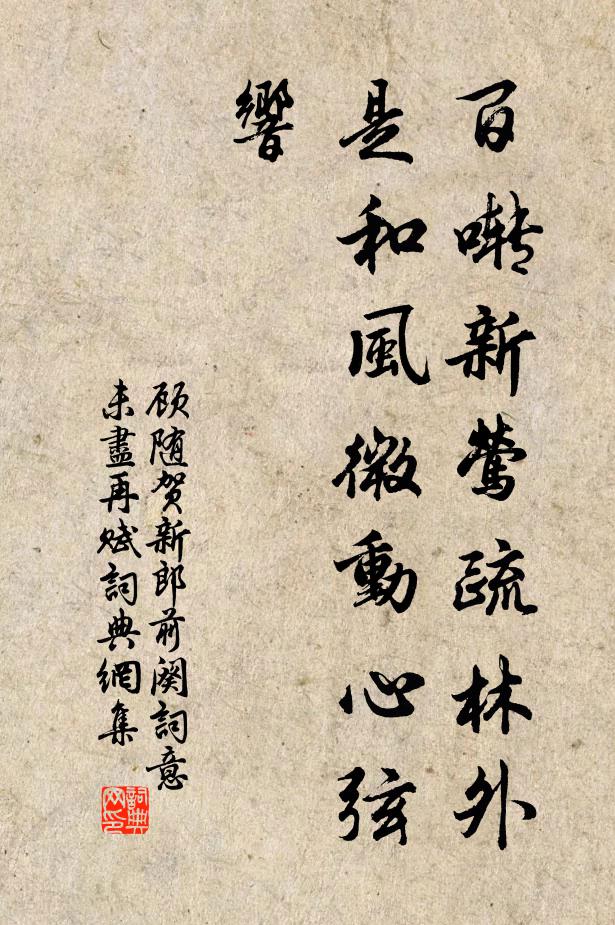 百囀新鶯疏林外
是和風微動心弦
響
顾随贺新郎前闋詞意
未盡再赋詞典網集
詞典
网印